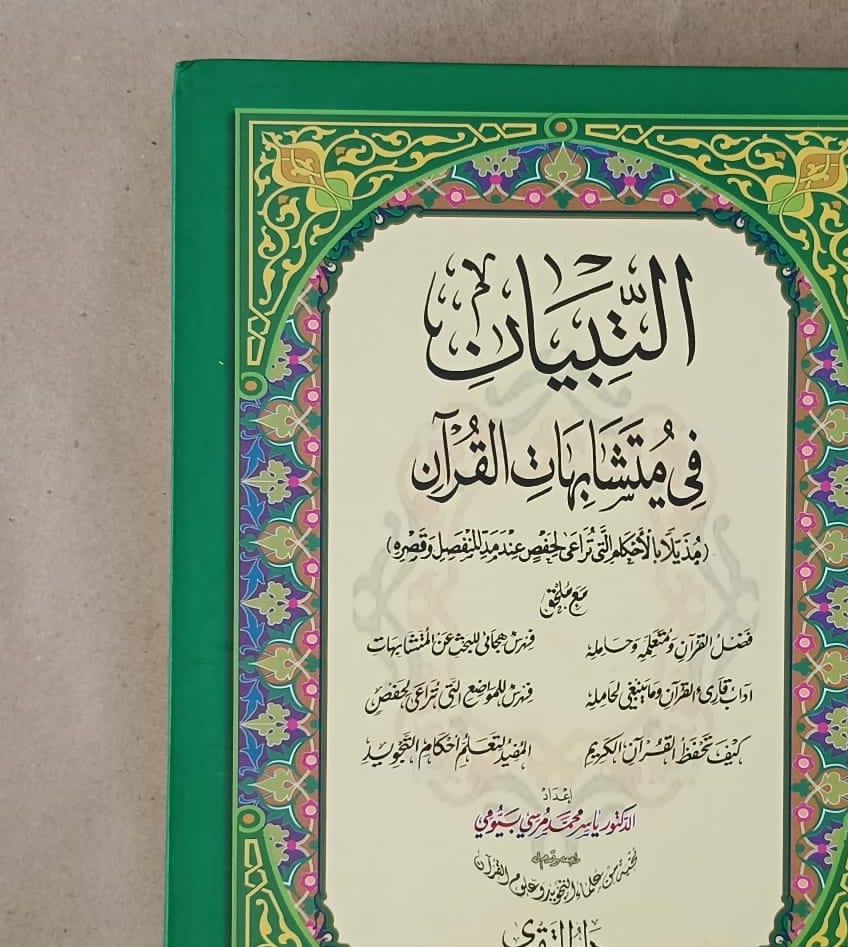 التِّبْيَانِ
فِي مُتَشَابِهَاتِ القُرْآن
(مُذَيَّلًا بِالأَحْكَامِ الَّتِي تُرَاعَى لِحَفْصٍ عِنْدَ مَدِّ المُنْفَصِلِ وَقَصْرِهِ)
مَعَ مُلْحَقِ
فَضْلُ القُرْآنِ وَمُتَعَلِّمِهِ وَحَامِلِهِ فِهْرِسٌ هِجَائِي لِلبَحْثِ عَنِ المُتَشَابِهَاتِ
آدَابُ قَارِئِ القُرْآنِ وَمَا يَنْبَغِي لِحَامِلِهِ فِهْرِسٌ لِلمَوَاضِعِ الَّتِي تُرَاعَى لِحَفْصٍ
كَيْفَ تَحْفَظُ القُرْآنَ الكَرِيمِ المُفِيدُ لِتَعَلُّمِ أَحْكَامِ التَّجْوِيدِ
إِعْدَادُ
الدكتور ياسر محمد مرسي بيومي
راجعه وقدم له
نخبة من علماء التجويد وعلوم القرآن
دار التقوى